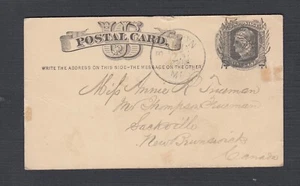 POSTAL CARD.
WRITE THE ADDRESS ON THIS SIDE - THE MESSAGE ON THE OTHER
Miss Annie K. Freeman
Mr Thompson Freeman
Sackville
New Brunswick
Canada